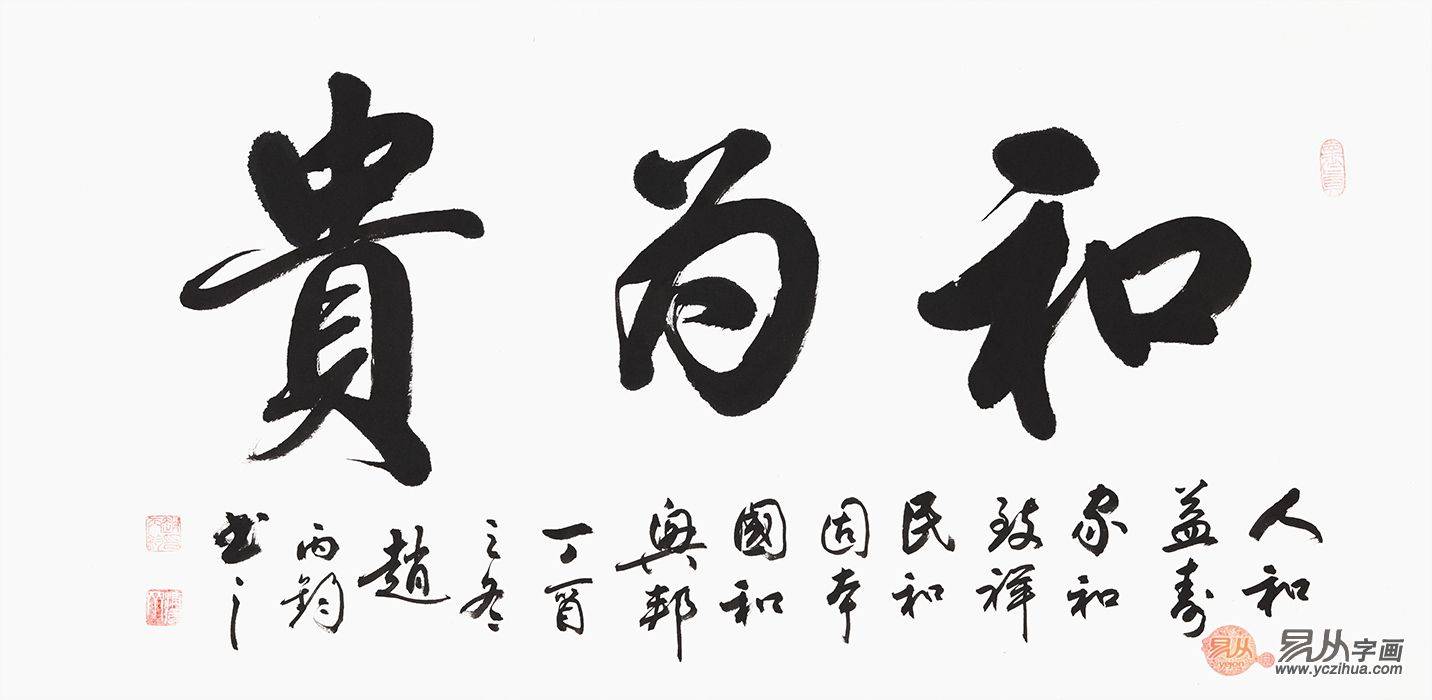 和為貴
人和
益壽
家和
致祥
民和
固本
國和
興邦
丁酉
之冬
趙
丙鈞
书之
易从字画
yejon
www.yczihua.com